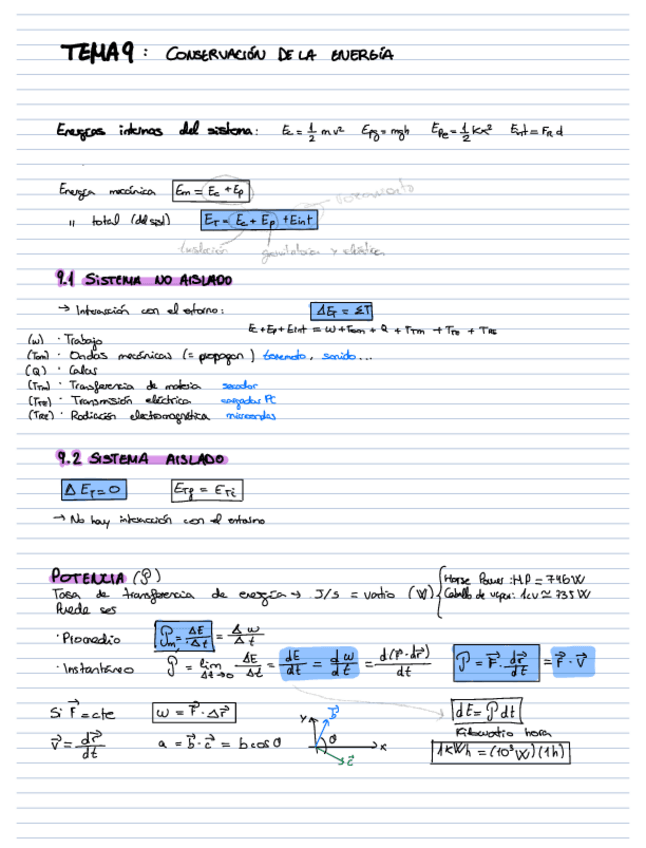 TEMA 9: CONSERVACIÓN DE LA ENERGÍA
Energías internas del sistema: Ec = 1/2 m v² Epg = mgh Epe = 1/2 Kx² Eint = FR d
Energía mecánica Em = Ec + Ep
" total (del sist) ET = Ec + Ep + Eint
traslación gravitatoria y elástica
9.1 SISTEMA NO AISLADO
→ Interacción con el entorno: ΔET = ΣT
Ec + Ep + Eint = W + Tom + Q + TTM + TTE + TRE
(W) · Trabajo
(Tom) · Ondas mecánicas (= propagan) terremoto, sonido...
(Q) · Calor
(TTM) · Transferencia de materia secador
(TTE) · Transmisión eléctrica cargador PC
(TRE) · Radiación electromagnética microondas
9.2 SISTEMA AISLADO
ΔET = 0 ETf = ETi
→ No hay interacción con el entorno
POTENCIA (P)
Tasa de transferencia de energía → J/s = vatio (W) { Horse Power: HP = 746 W
Caballo de vapor: 1cv ≃ 735 W
Puede ser
· Promedio Pm = ΔE/Δt = ΔW/Δt
· Instantáneo P = lim Δt→0 ΔE/Δt = dE/dt = dW/dt = d(F⃗·dr⃗)/dt P = F⃗·dr⃗/dt = F⃗·V⃗
Si F⃗ = cte W = F⃗·Δr⃗ y b⃗ dE = P dt
Kilowatio hora
v⃗ = dr⃗/dt a = b⃗·c⃗ = b cos θ θ x c⃗ 1kWh = (10³ W)(1h)